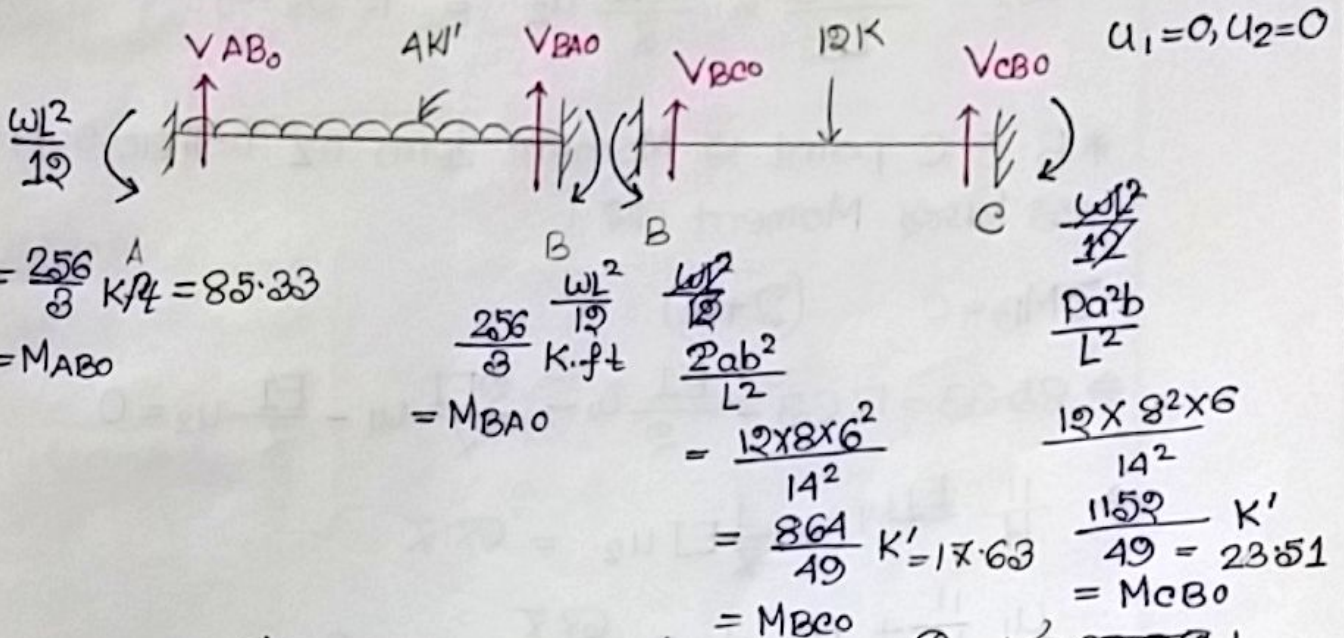 V_AB0 4K/' V_BA0 V_BC0 12K V_CB0 u₁=0, u₂=0
wL²/12
A B B C
= 256/3 K.ft = 85.33
= M_AB0
wL²/12
256/3 K.ft
= M_BA0
wL²/12
Pab²/L²
= 12×8×6²/14²
= 864/49 K' = 17.63
= M_BC0
wL²/12
Pa²b/L²
12×8²×6/14²
1152/49 K' = 23.51
= M_CB0